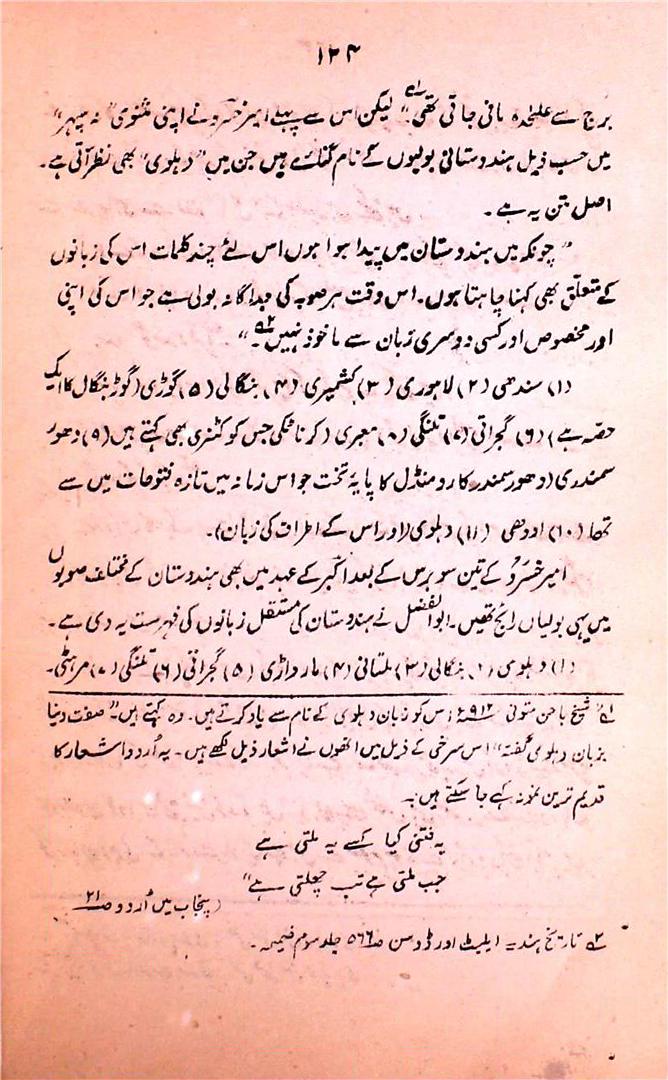 ۱۲۴
برج سے علیحدہ مانی جاتی تھی۔" لیکن اس سے پہلے امیر خسرو نے اپنی مثنوی "نہ سپہر"
میں حسب ذیل ہندوستانی بولیوں کے نام گنائے ہیں جن میں "دہلوی" بھی نظر آتی ہے۔
اصل متن یہ ہے۔
"چونکہ میں ہندوستان میں پیدا ہوا ہوں اس لئے چند کلمات اس کی زبانوں
کے متعلق بھی کہنا چاہتا ہوں۔ اس وقت ہر صوبہ کی جداگانہ بولی ہے جو اس کی اپنی
اور مخصوص اور کسی دوسری زبان سے ماخوذ نہیں ہے۔"
(۱) سندھی (۲) لاہوری (۳) کشمیری (۴) بنگالی (۵) گوڑی (گوڑ بنگال کا ایک
حصہ ہے) (۶) گجراتی (۷) تلنگی (۸) معبری (کرناٹکی جس کو کنٹری بھی کہتے ہیں (۹) دھور
سمندری (دھور سمندر کارومنڈل کا پایۂ تخت جو اس زمانہ میں تازہ فتوحات میں سے
تھا (۱۰) اودھی (۱۱) دہلوی (اور اس کے اطراف کی زبان)۔
امیر خسرو کے تین سو برس کے بعد اکبر کے عہد میں بھی ہندوستان کے مختلف صوبوں
میں یہی بولیاں رائج تھیں۔ ابوالفضل نے ہندوستان کی مستقل زبانوں کی فہرست یہ دی ہے۔
(۱) دہلوی (۲) بنگالی (۳) ملتانی (۴) مارواڑی (۵) گجراتی (۶) تلنگی (۷) مرہٹی۔
۱ے "شیخ باجن متوفی ۹۱۲ھ اس کو زبان دہلوی کے نام سے یاد کرتے ہیں۔ وہ کہتے ہیں۔ "صفت دنیا
بزبان دہلوی گفتہ" اس سرخی کے ذیل میں انھوں نے اشعار ذیل لکھے ہیں۔ یہ اُردو اشعار کا
قدیم ترین نمونہ کہے جا سکتے ہیں:۔
یہ فتنی کیا کسے یہ ملتی ہے
جب ملتی ہے تب چھلتی ہے"
(پنجاب میں اُردو صـ۲۱
۲ے تاریخ ہند = ایلیٹ اور ڈوسن صـ۵۶۶ جلد سوم ضمیمہ۔